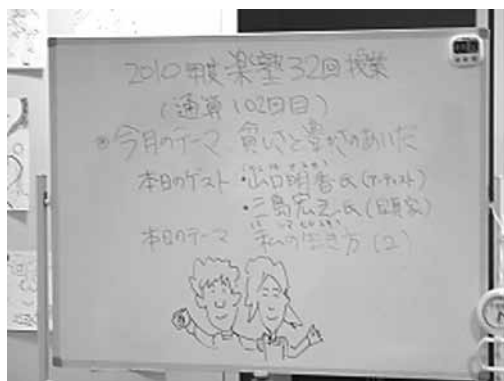 2010年度 楽塾32回授業
(通算102回目)
今月のテーマ 貧しさと豊かさのあいだ
本日のゲスト・山口明香氏(アーティスト)
・三島宏之氏(写真家)
本日のテーマ 私の生き方(2)